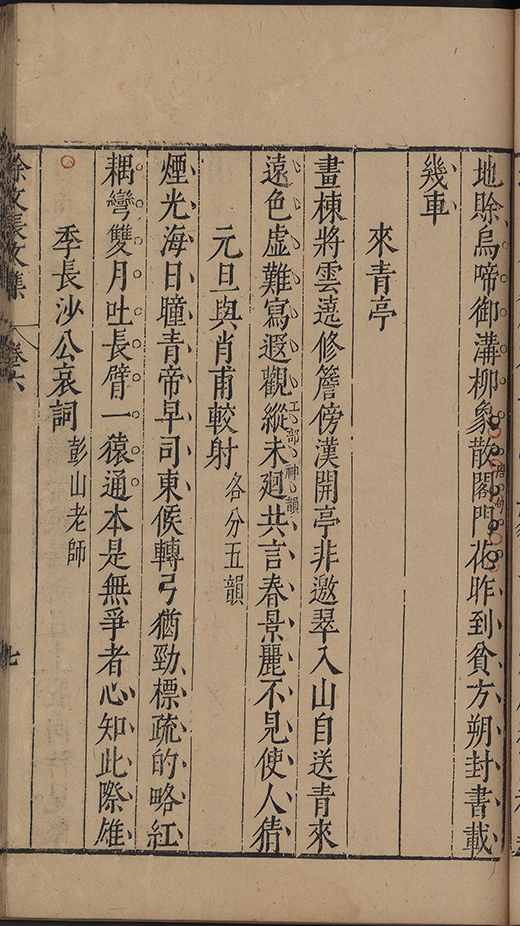 地賒烏啼御溝柳象散閣門花昨到貧方朔封書載
唐句
幾車
來青亭
畫棟將雲遶修簷傍漢開亭非邀翠入山自送青來
遠色虚難寫遐觀縱未廻共言春景麗不見使人猜
工部神韻
元旦與肖甫較射各分五韻
煙光海日曈青帝早司東候轉弓猶勁標疏的略紅
耦彎雙月吐長臂一猿通本是無爭者心知此際雄
季長沙公哀詞彭山老師
徐文長文集
卷六
七